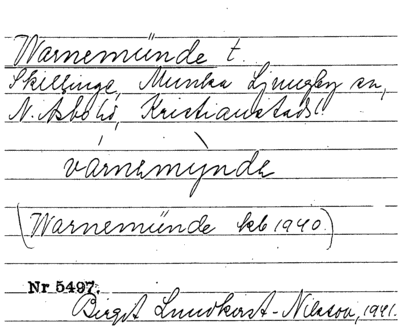 Warnemünde t.
Skillinge, Munka Ljungby sn,
N. Åsbo hd, Kristianstads l.
várnemỳnde
(Warnemünde kb 1940.)
Nr 5497.
Birgit Lundkvist-Nilsson, 1941.